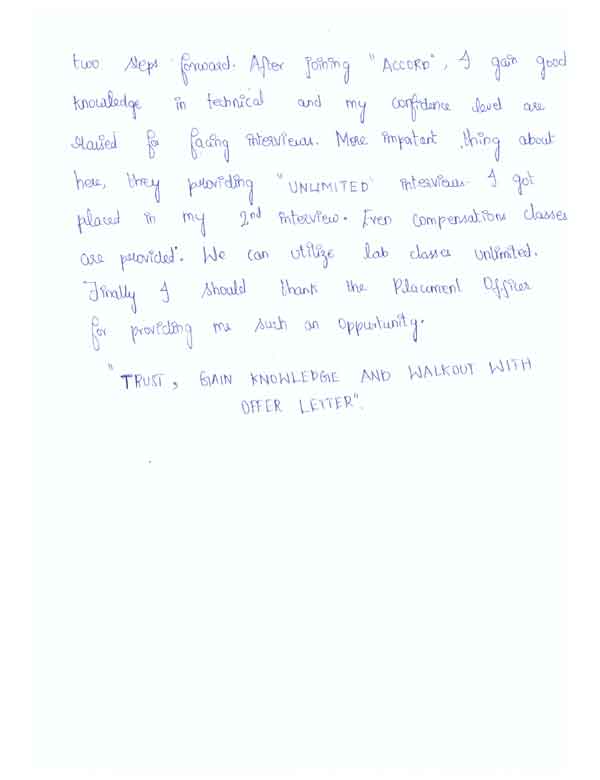 two steps forward. After joining "ACCORD", I gain good
knowledge in technical and my confidence level are
raised for facing interviews. More impotant thing about
here, they providing "UNLIMITED" interviews. I got
placed in my 2nd interview. Even compensations classes
are provided. We can utilize lab classes unlimited.
Finally I should thank the Placement Officer
for providing me such an oppurtunity.
"TRUST, GAIN KNOWLEDGE AND WALKOUT WITH
OFFER LETTER".